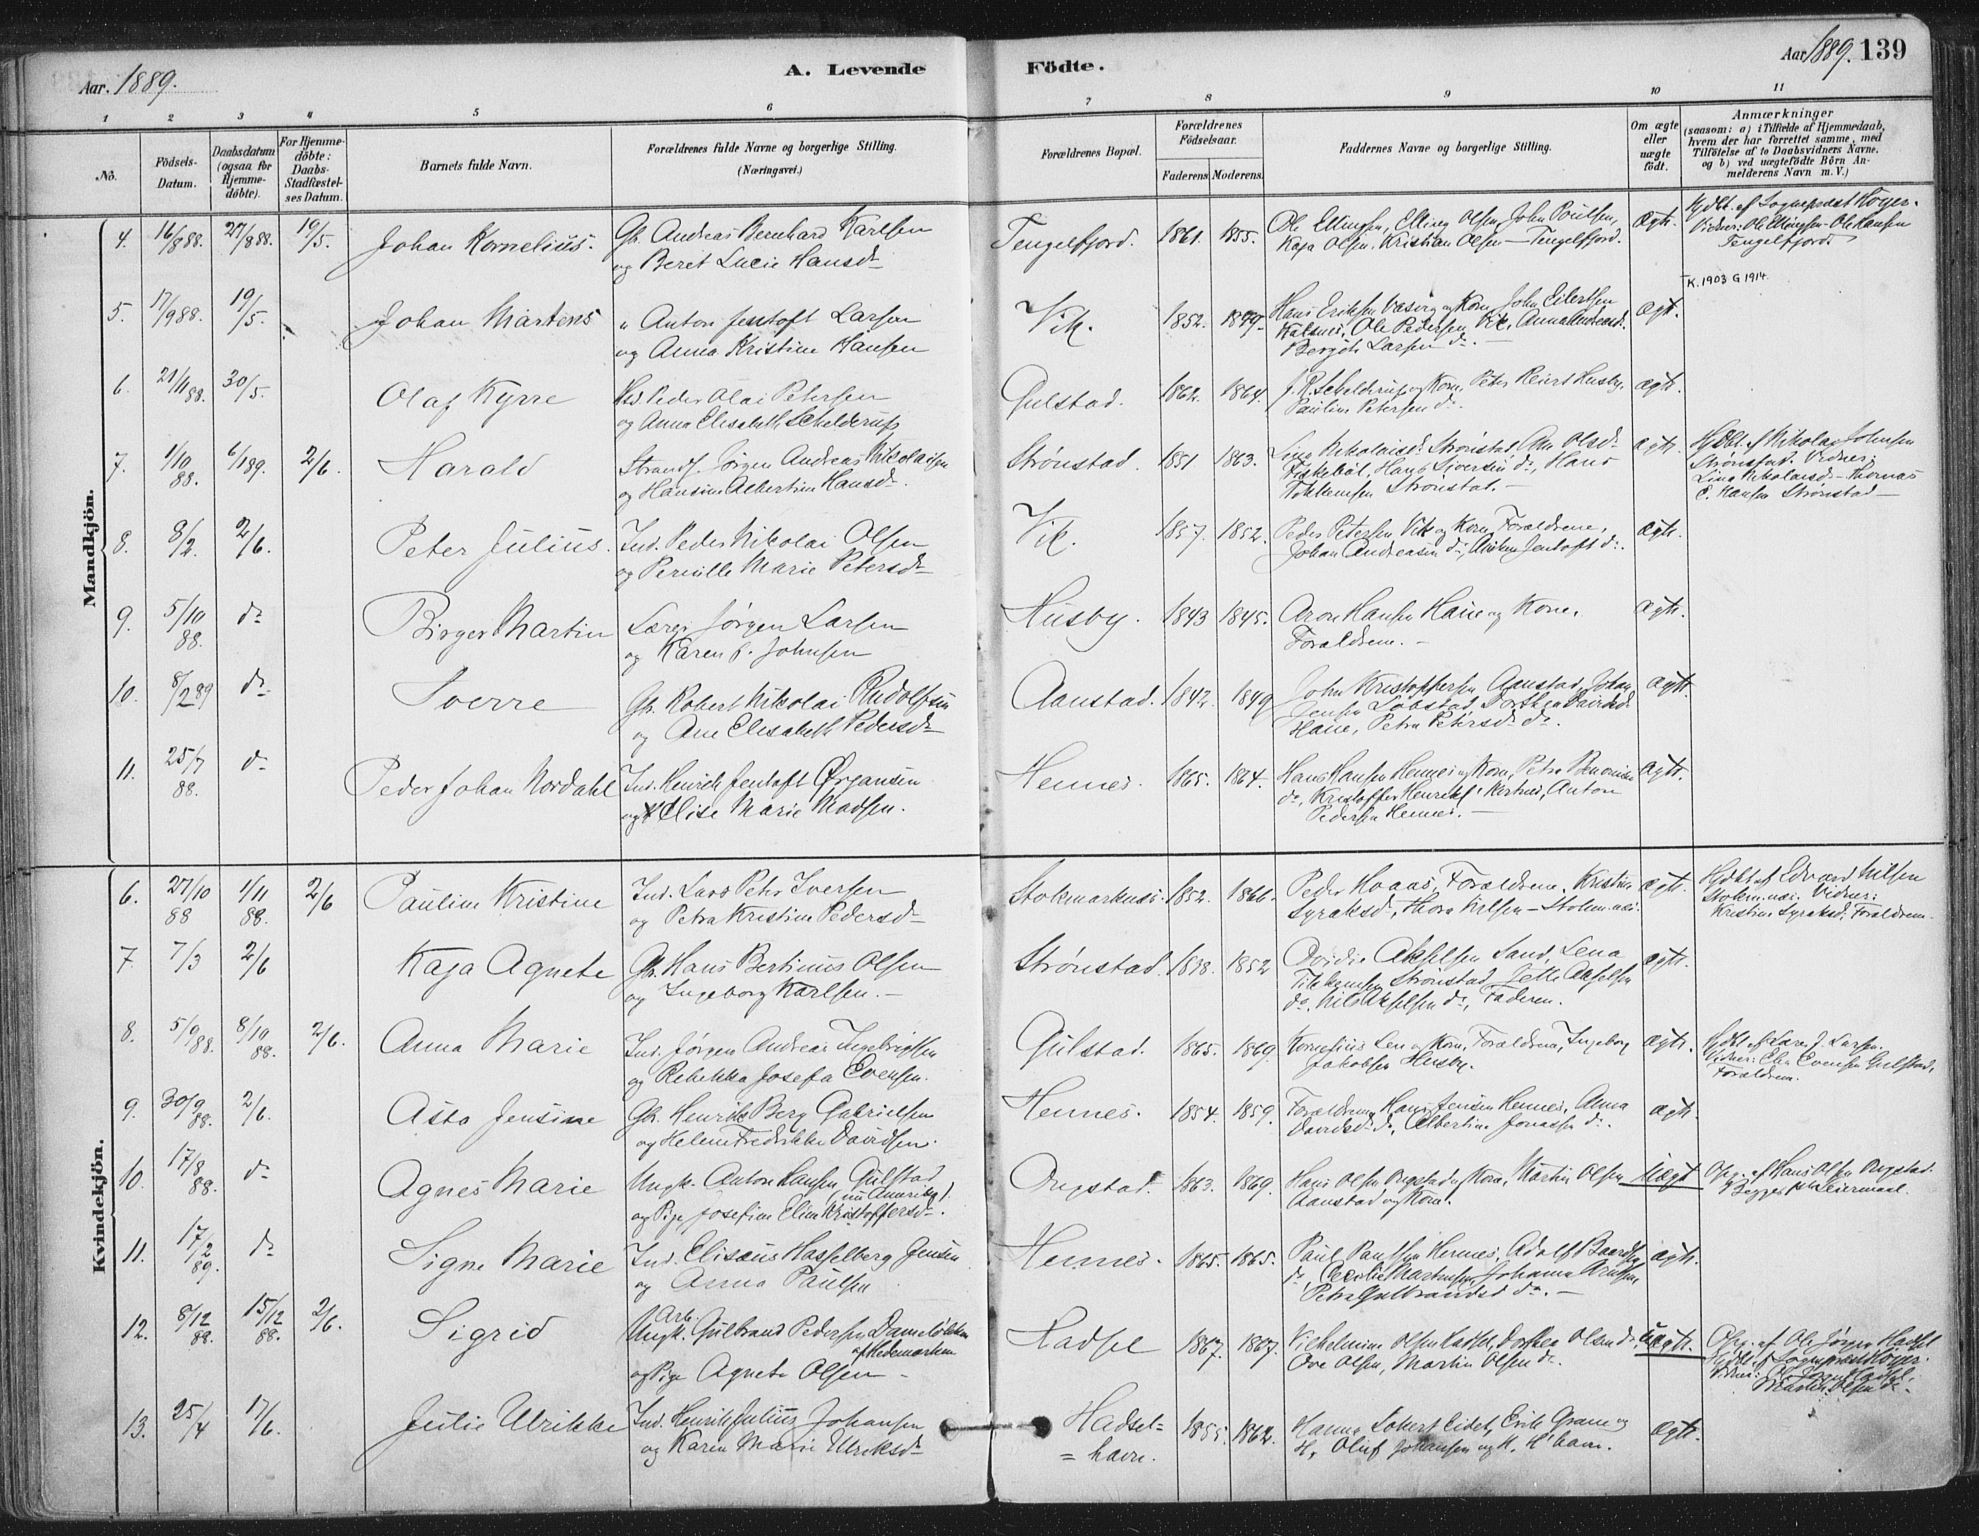 Aar. 1889.
A. Levende
Födte.
Aar 1889. 139
1 2 3 4 5 6 7 8 9 10 11
No.
Födsels-Datum.
Daabsdatum (ogsaa for Hjemme-döbte).
For Hjemme-döbte: Daabs-Stadfæstel-ses Datum.
Barnets fulde Navn.
Forældrenes fulde Navne og borgerlige Stilling.
(Næringsvei.)
Forældrenes Bopæl.
Forældrenes Födselsaar.
Faderens. Moderens.
Faddernes Navne og borgerlige Stilling.
Om ægte eller uægte födt.
Anmærkninger
(saasom: a) i Tilfælde af Hjemmedaab, hvem der har forrettet samme, med Tilföielse af to Daabsvidners Navne, og b) ved uægtefödte Börn An-melderens Navn m. V.)
Mandkjön.
4. 16/8 88. 27/8 88. 19/5. Johan Kornelius. Gb. Andreas Bernhard Karlsen
og Beret Lucie Hansd.
Tengelfjord. 1861. 1855. Ole Ellingsen, Elling Olsen, John Poulsen,
Kaja Olsen, Kristian Olsen — Tengelfjord. Ægte.
Hjdbt. af Sognepræst Höyer.
Vidner: Ole Ellingsen – Ole Hansen
Tengelfjord
K. 1903 G 1914.
5. 17/9 88. 19/5. Johan Martens " Anton Jentoft Larsen
og Anna Kristine Hansen
Vik. 1852. Hans Eriksen og Kone, John Eilertsen
Kalsnes, Ole Pedersen Vik, Anna Andreasd.
Larsen do. — ægt.
6. 21/11 88. 30/5. Olaf Kyrre Peder Olai Petersen
og Anna Elisabeth Schelderup
Gulstad. 1862. 1864. J. R. Schelderup og Kone, Peter Husby,
Petersen do. ægte.
7. 1/10 88. 6/1 89. 2/6. Harald Strands. Jörgen Andreas Nikolaisen
og Hansine Albertine Hansd.
Strönstad. 1851. 1863. Lina Nikolaisd. Strönstad, Olsd.
Fiskeböl, Hans Siversen do., Hans
Strönstad. — ægte.
Hjdbt. af Nikolay Johnsen
Strönstad. Vidner:
Lina Nikolaisd. – Thomas
E. Hansen Strönstad —
8. 8/2. 2/6. Peter Julius. Ind. Peder Nikolai Olsen
og Pernille Marie Petersd.
Vik. 1857. 1852. Peder Petersen Vik og Kone, Forældrene,
Johan Andreasen do., Jentoft do. ægte.
9. 5/10 88. do Birger Martin Lærer Jörgen Larsen
og Karen Johnsen
Husby. 1843 1845. Aron Hansen Haue og Kone.
Forældrene. — Ægte.
10. 8/2 89 do. Sverre Gb. Robert Nikolai Rudolfsen
og Ane Elisabeth Pedersd.
Aanstad. 1842. 1849 John Kristoffersen Aanstad, Johan
Jensen Löbstad, Dorthea
Haue, Petra Petersd. do. Ægte.
11. 25/7 88. do Peder Johan Nordahl Ind. Henrik Jentoft Örjansen
og Elise Marie Madsen.
Hennes. 1865. 1864. Hans Hansen Hennes og Kone, Petra
do, Kristoffer, Anton
Pedersen Hennes. — Ægte.
Kvindekjön.
6. 27/10 88 1/11 88. 2/6 Pauline Kristine Ind. Lars Peter Iversen
og Petra Kristine Pedersd.
Stokmarknes. 1852. 1866. Peder Haaas, Forældrene, Kristine
Syraksd., Thora Nilsen – Stokm.næs. ægte.
Hjdbt af Edvard Nilsen
Stokm.næs. Vidner:
Kristine Syraksd. Forældrene.
7. 7/3 2/6 Kaja Agnete Gb. Hans Bertinus Olsen
og Ingeborg Karlsen. —
Strönstad. 1838. 1852 Akselsen Sand, Lena
Strönstad, Akselsen
do, Nils Akselsen do, Faderen. ægte.
8. 5/9 88. 8/10 88. 2/6. Anna Marie Ind. Jörgen Andreas Ingebrigtsen
og Rebekka Josefa Evensen.
Gulstad. 1865. 1869. Kornelius og Kone, Forældrene, Ingeborg
Jakobsen Husby. ægte.
Hjdbt af Lars J. Larsen.
Vidner: Evensen Gulstad,
Forældrene.
9. 30/9 88. 2/6. Asta Jensine Gb. Henrik Berg Gabrielsen
og Helene Fredrikke Davidsen.
Hennes. 1854. 1859. Forældrene, Hans Jensen Hennes, Anna
Davidsd. do., Albertine Jonassen do. ægte
10. 17/8 88. do Agnes Marie Ungk. Anton Hansen Gulstad
(nu Amerika)
og Pige Josefine Eline Kristoffersd.
Ongstad. 1863. 1869. Hans Olsen Ongstad og Kone, Martin Olsen
Aanstad og Kone. Uægt
Opg. af Hans Olsen Ongstad.
Begges Leiermaal.
11. 17/2 89. do Signe Marie Ind. Elisæus Hasselberg Jensen
og Anna Paulsen
Hennes. 1865. 1865. Paul Paulsen Hennes, Adolf
do, Cecilie Martinsen, Johanna
Petra Gulbrandsd do. — ægte.
12. 8/12 88. 15/12 88. 2/6. Sigrid Arb.
Ungk. Gulbrand Pedersen
af Hedemarken
og Pige Agnete Olsen —
Hadsel 1867. 1867. Vilhelmine Olsen Hadsel, Dorthea Olsen do.,
Ove Olsen, Martin Olsen do. Uægte.
Opg. af Ole Jörgen Hadsel
Hjdbt. af Sognepræst Höyer.
Vidner: Ole Hadsel,
Martin Olsen do.
13. 25/4 17/6. Julie Ulrikke Ind. Henrik Julius Johansen
og Karen Marie Ulriksd.
Hadsel-
= havn. 1855. 1862. Hanna Eidet, Erik Grane og
H., Oluf Johansen og K. H'havn. ægte.